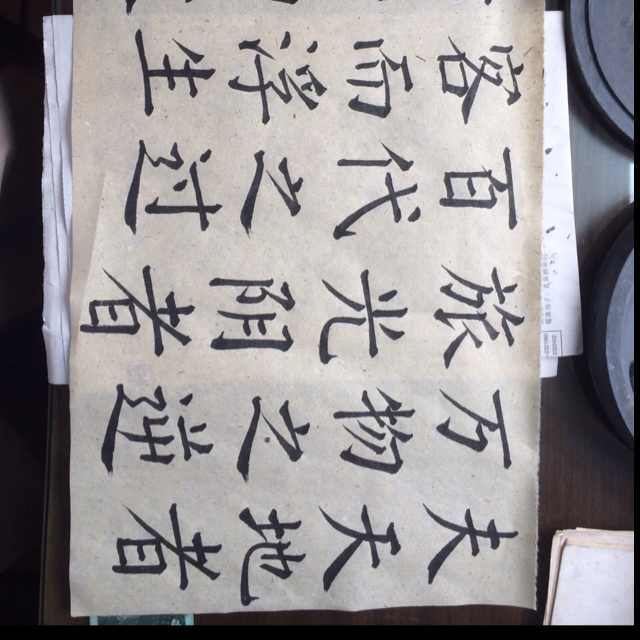 夫天地者
万物之逆
旅光阴者
百代之过
客而浮生